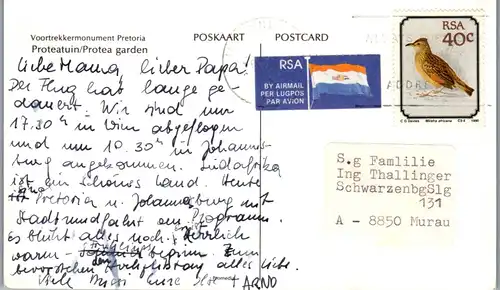 Voortrekkermonument Pretoria
Proteatuin/Protea garden
POSKAART
POSTCARD
Liebe Mama, lieber Papa!
Der Flug hat lange ge
dauert. Wir sind um
17.30 h in Wien abgeflogen
und um 10.30 h in Johannes-
burg angekommen. Südafrika
ist ein schönes Land. Heute
Pretoria u. Johannesburg mit
Stadtrundfahrt am Programm.
Es blüht alles noch. Herrlich
warm
bevorstehenden Hochzeitstag alles Liebe.
Viele Eure + ARNO
RSA
BY AIRMAIL
PER LUGPOS
PAR AVION
RSA
40c
S.g Famlilie
Ing Thallinger
SchwarzenbgSlg
131
A - 8850 Murau